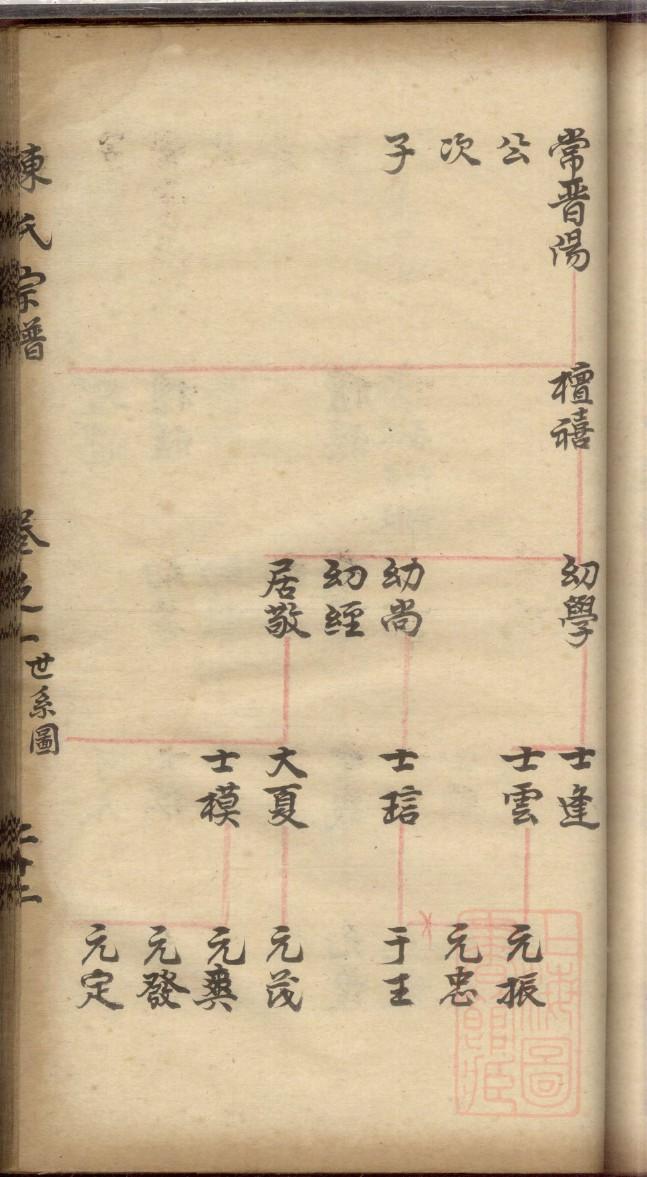 常晋陽
公
次
子
檀禧
幼學
幼尚
幼經
居敬
士逢
士雲
士琂
大夏
士模
元振
元忠
于王
元茂
元奭
元發
元定
陳氏宗譜
卷之一
世系圖
二十二